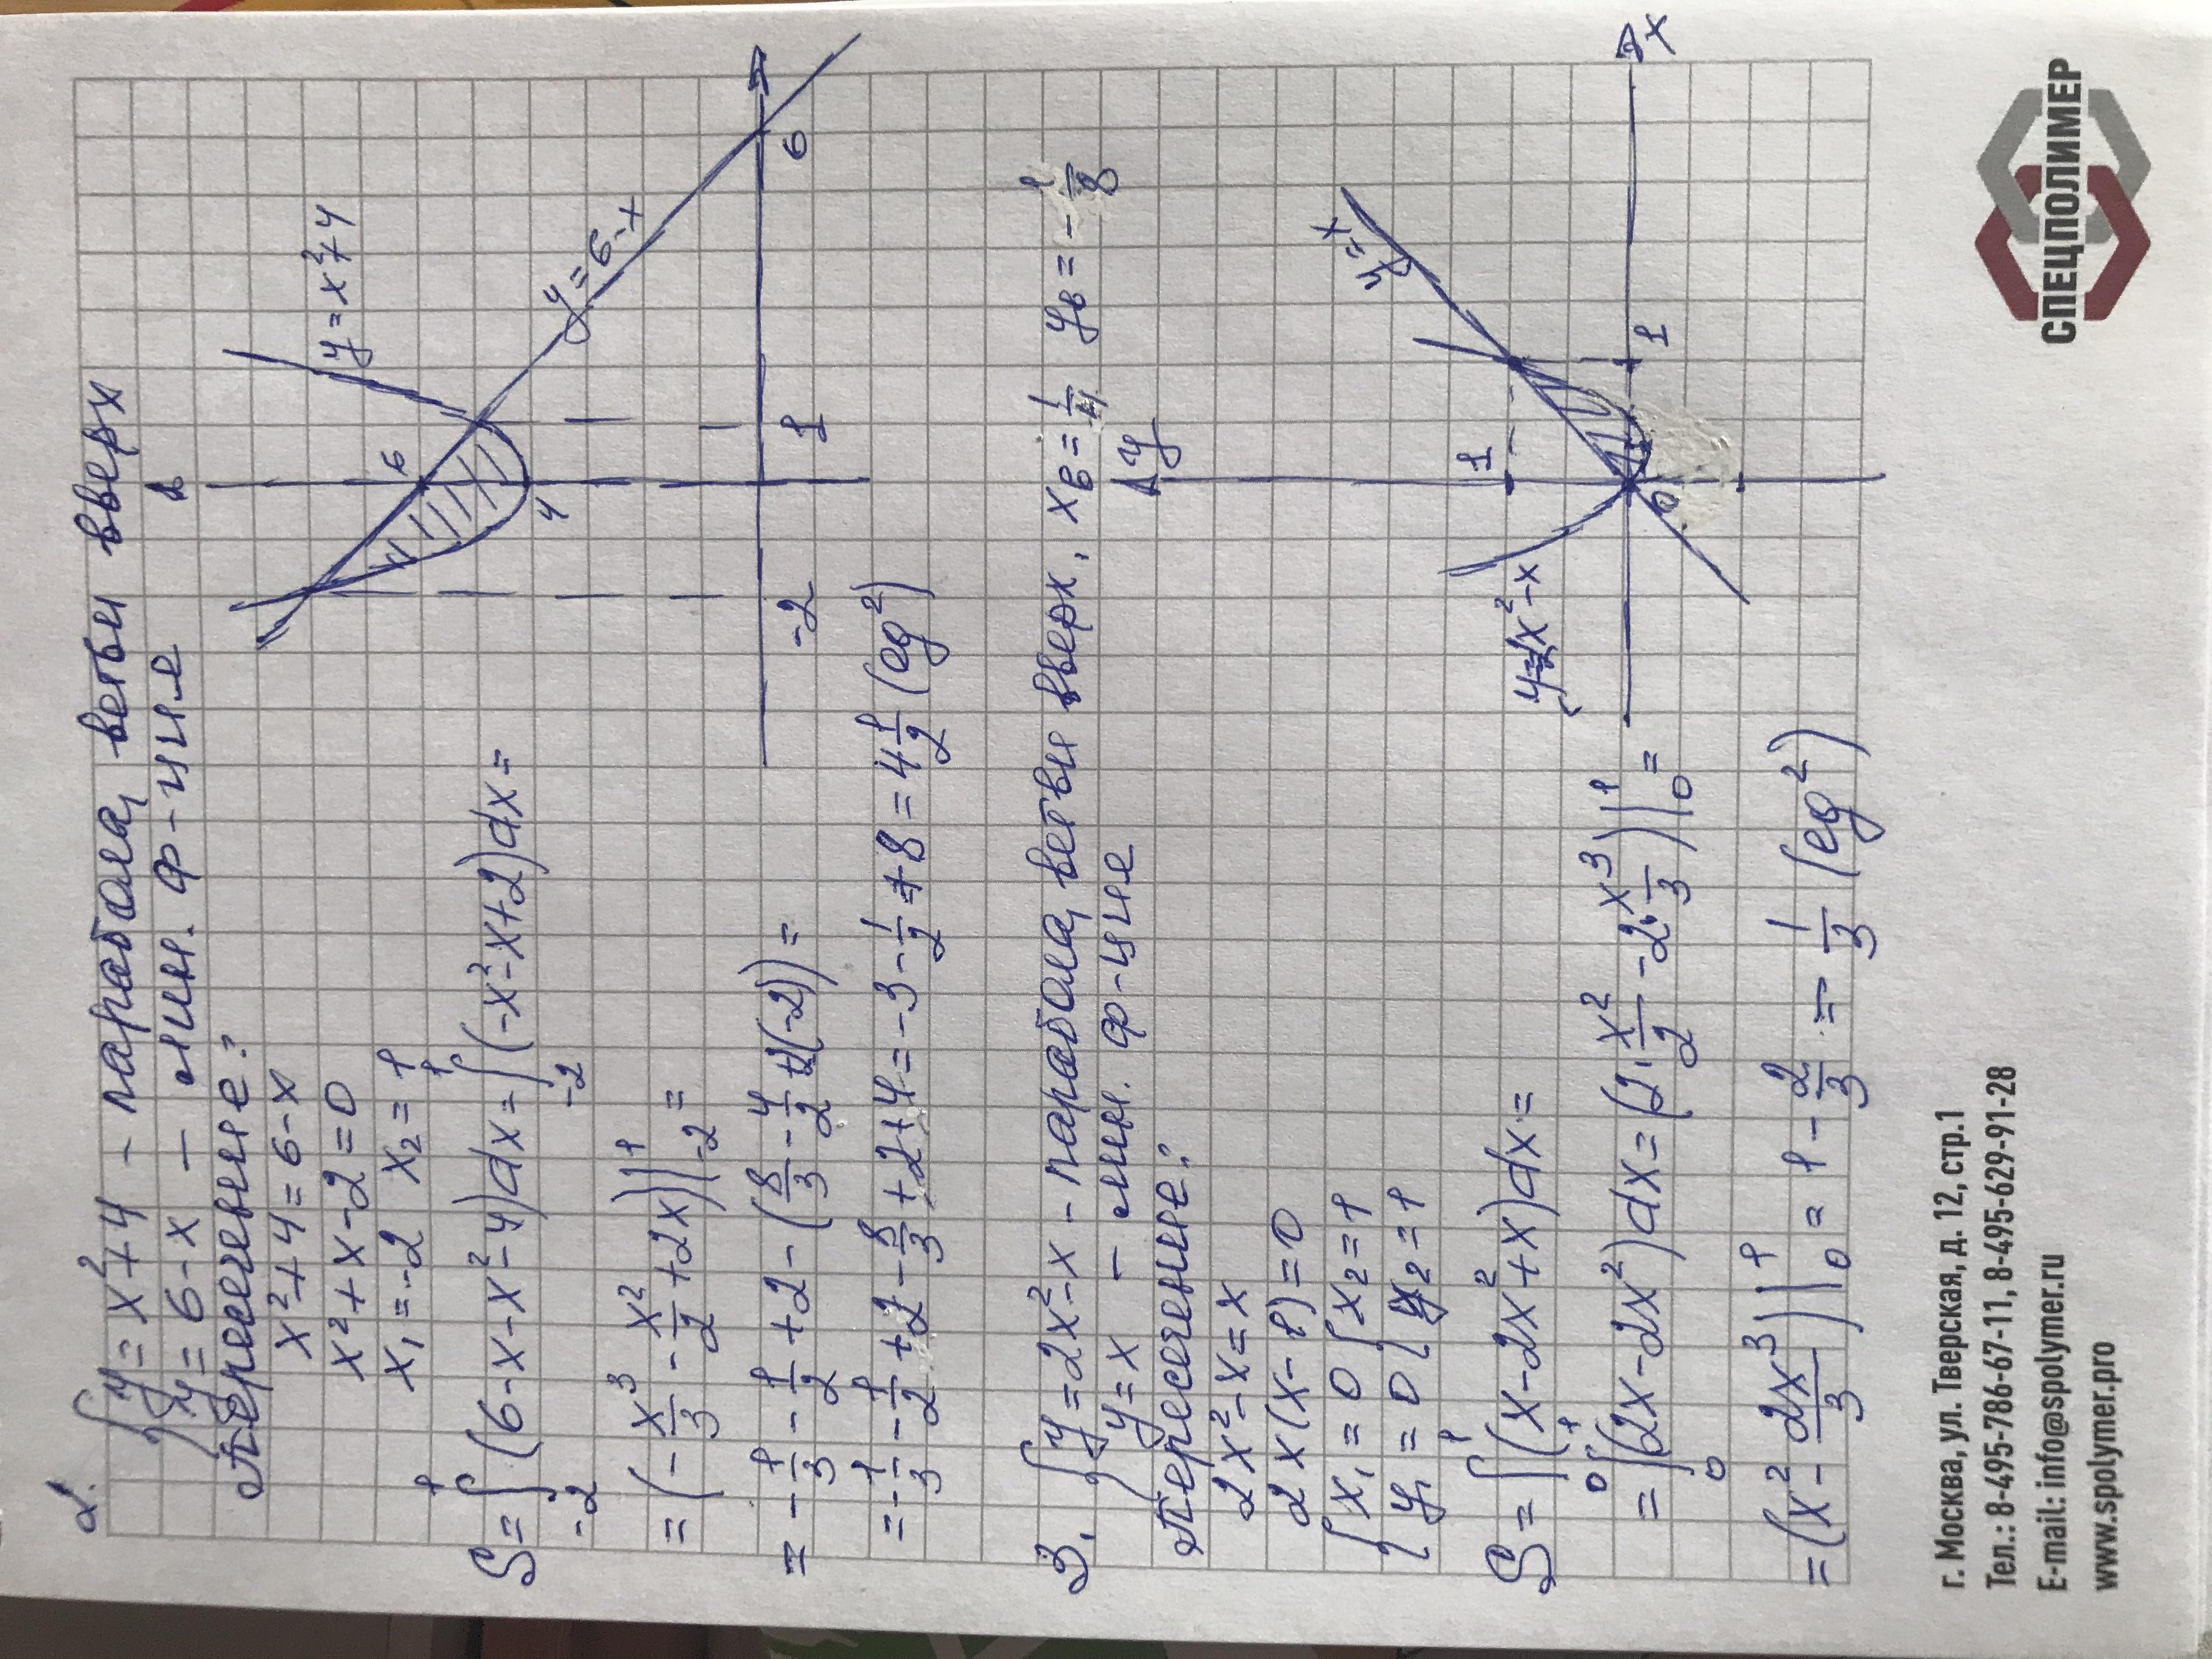 2.
{ y = x² + 4 - парабола, ветви вверх
y = 6 - x — лин. ф-ция
Пересечение:
x² + 4 = 6 - x
x² + x - 2 = 0
x₁ = -2 x₂ = 1
S = ∫₋₂¹ (6 - x - x² - 4)dx = ∫₋₂¹ (-x² - x + 2)dx =
= (-x³/3 - x²/2 + 2x)|₋₂¹ =
= -1/3 - 1/2 + 2 - (8/3 - 4/2 + 2(-2)) =
= -1/3 - 1/2 + 2 - 8/3 + 2 + 4 = -3 - 1/2 + 8 = 4 1/2 (ед²)
y = x² + 4
y = 6 - x
6
4
-2
1
6
3.
{ y = 2x² - x - парабола, ветви вверх, xв = 1/4 yв = -1/8
y = x — лин. ф-ция
Пересечение:
2x² - x = x
2x(x - 1) = 0
{ x₁ = 0 { x₂ = 1
y₁ = 0 y₂ = 1
S = ∫₀¹ (x - 2x² + x)dx =
= ∫₀¹ (2x - 2x²)dx = (2·x²/2 - 2·x³/3)|₀¹ =
= (x² - 2x³/3)|₀¹ = 1 - 2/3 = 1/3 (ед²)
y
y = x
1
y = 2x² - x
0
1
x
г. Москва, ул. Тверская, д. 12, стр.1
Тел.: 8-495-786-67-11, 8-495-629-91-28
E-mail: info@spolymer.ru
www.spolymer.pro
СПЕЦПОЛИМЕР